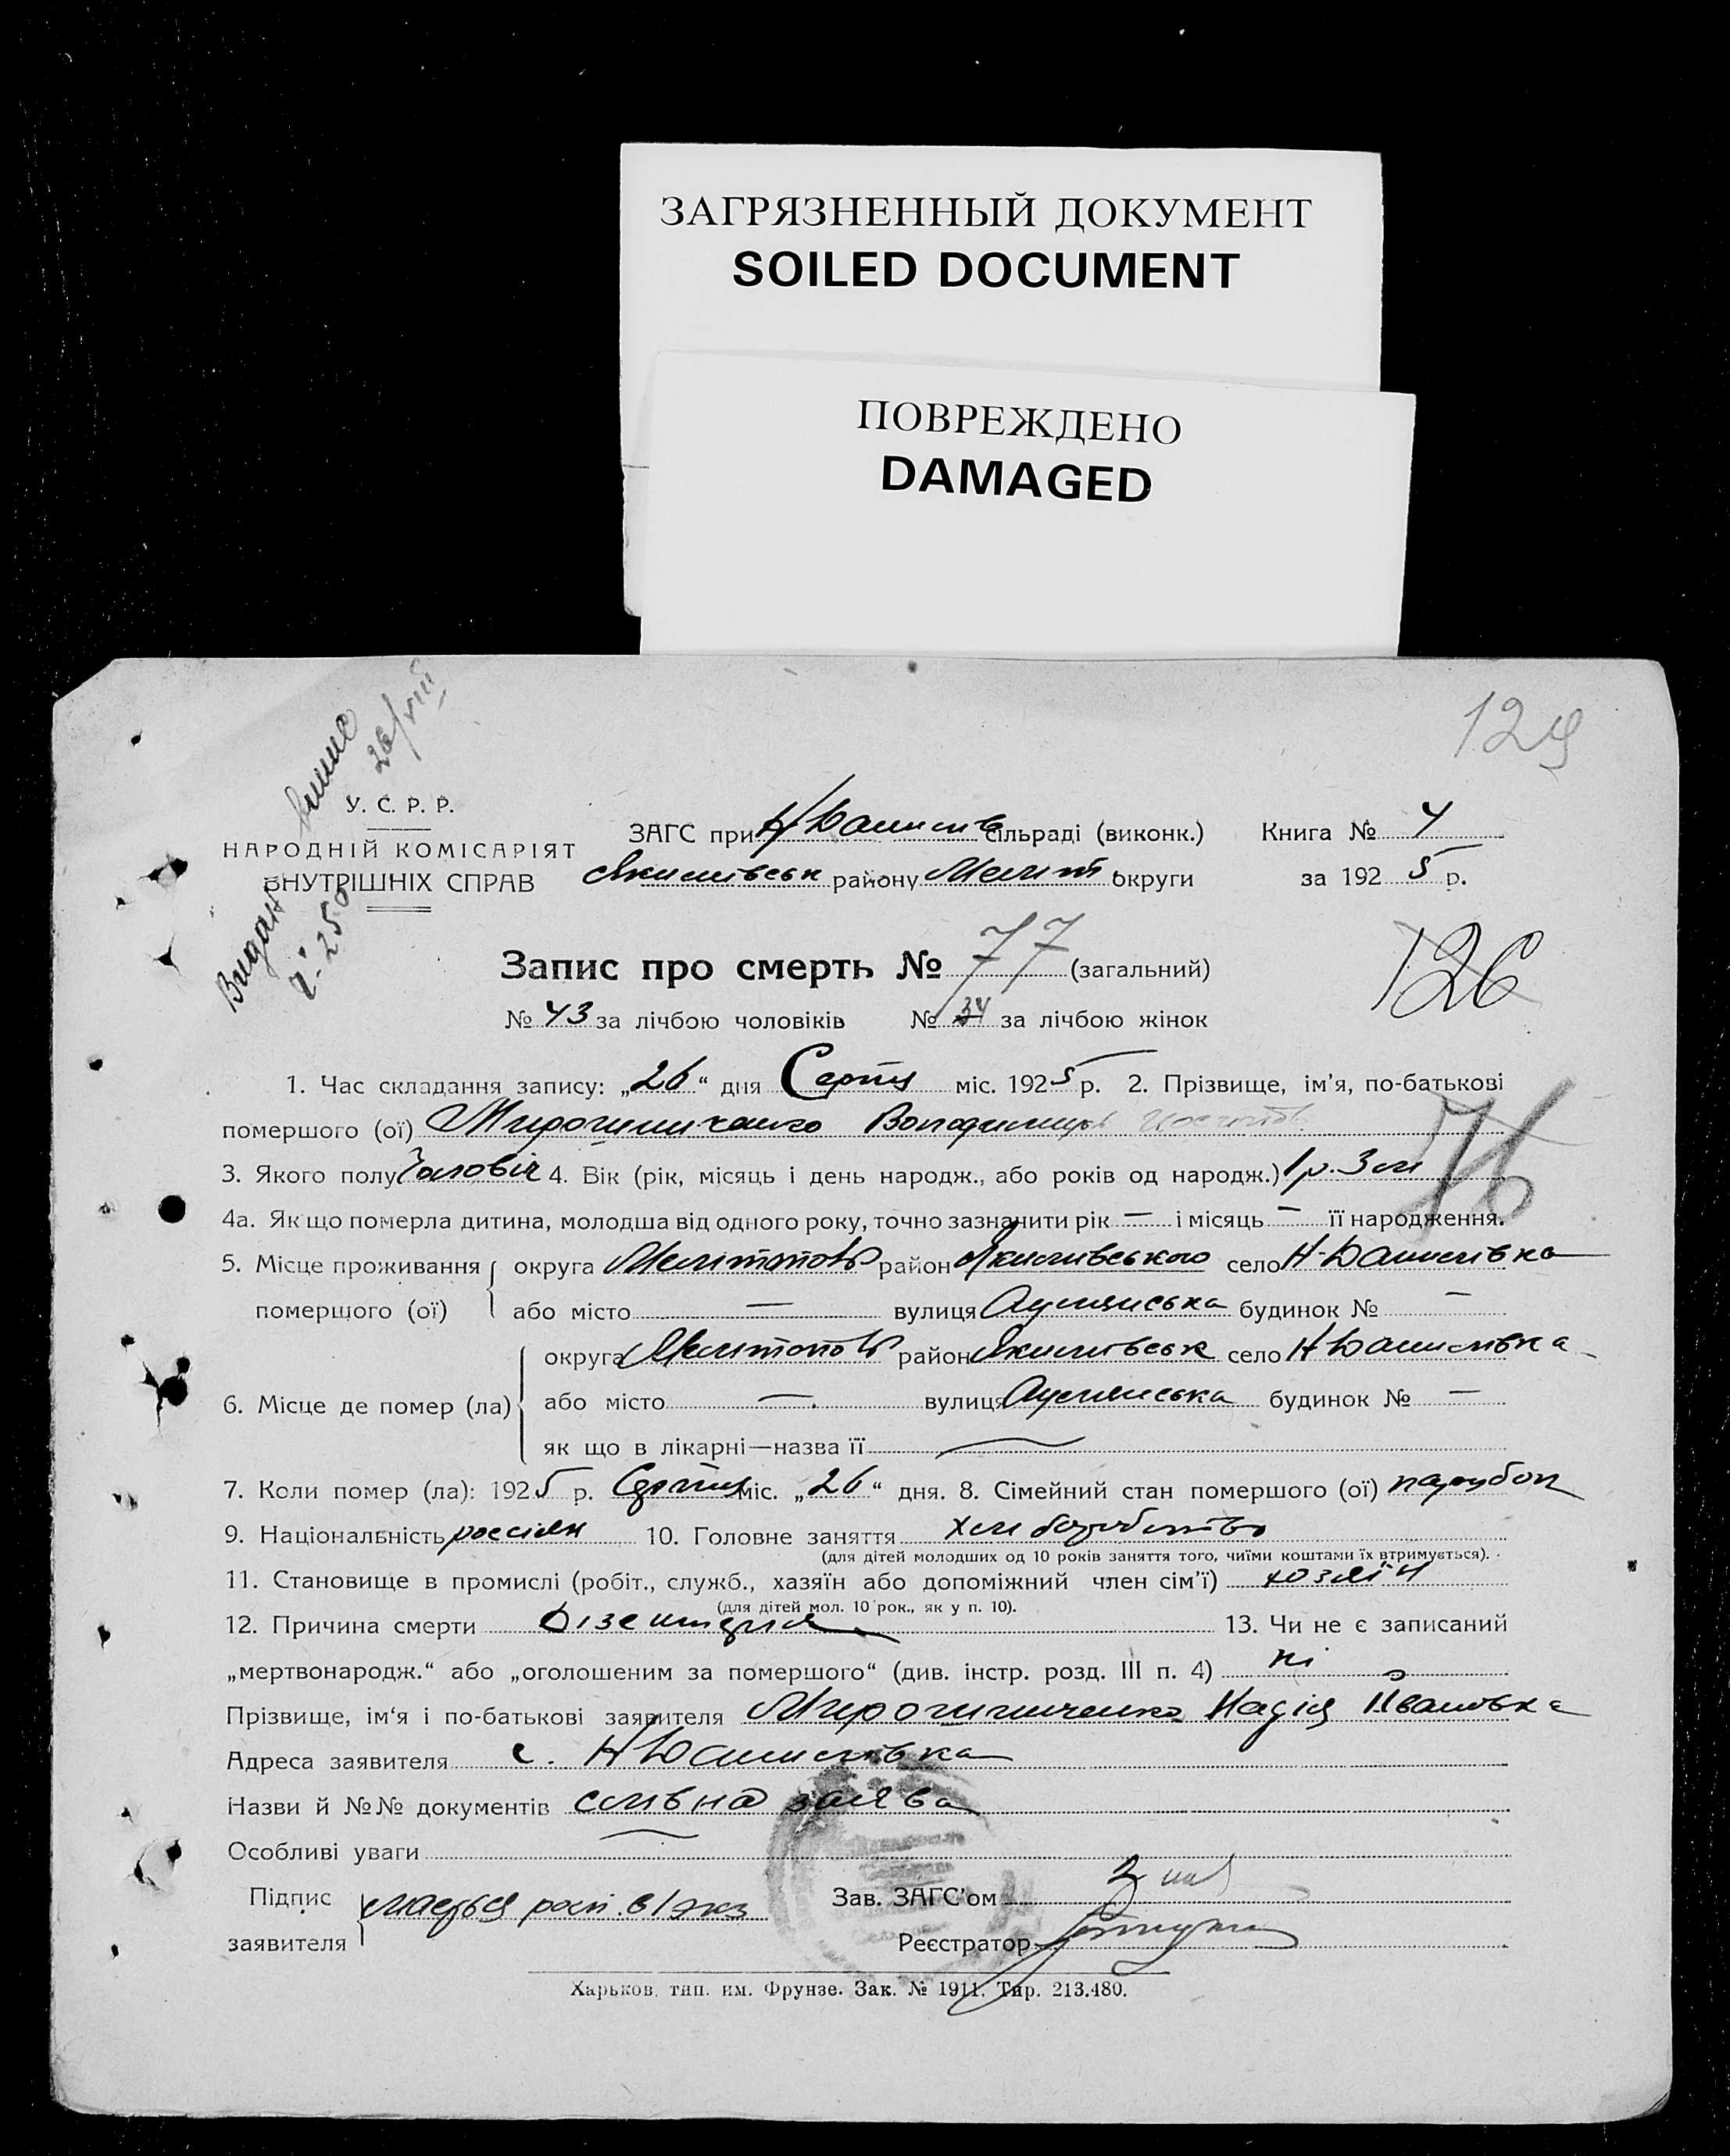 ЗАГРЯЗНЕННЫЙ ДОКУМЕНТ
SOILED DOCUMENT
ПОВРЕЖДЕНО
DAMAGED
129
26/VIII
У. С. Р. Р.
НАРОДНІЙ КОМІСАРІЯТ
ВНУТРІШНІХ СПРАВ
Видан
ЗАГС при Н Данилів сільраді (виконк.) Книга № 4
Якимівськ району Меліт округи за 1925 р.
Запис про смерть № 77 (загальний)
126
№ 43 за лічбою чоловіків № 34 за лічбою жінок
1. Час складання запису: „26“ дня Серпня міс. 1925 р. 2. Прізвище, ім'я, по-батькові
76
помершого (ої) Мирошниченко Володимир
3. Якого полу Чоловіч 4. Вік (рік, місяць і день народж., або років од народж.) 1 р. 3 м
4а. Як що померла дитина, молодша від одного року, точно зазначити рік — і місяць — її народження.
5. Місце проживання округа Мелітопів район Якимівського село Н-Данилівка
померщого (ої) або місто — вулиця будинок № —
округа Мелітопів район Якимівськ село Н Данилівка
6. Місце де помер (ла) або місто — вулиця будинок № —
як що в лікарні—назва її —
7. Коли помер (ла): 1925 р. Серпня міс. „26“ дня. 8. Сімейний стан помершого (ої) парубок
9. Національність россіян 10. Головне заняття хліборобство
(для дітей молодших од 10 років заняття того, чиїми коштами їх втримується).
11. Становище в промислі (робіт., служб., хазяїн або допоміжний член сім'ї) хозяїн
(для дітей мол. 10 рок., як у п. 10).
12. Причина смерти Дізентерия 13. Чи не є записаний
„мертвонародж.“ або „оголошеним за помершого“ (див. інстр. розд. III п. 4) ні
Прізвище, ім'я і по-батькові заявителя Мирошниченко Надія Івановна
Адреса заявителя с. Н Данилівка
Назви й №№ документів заява
Особливі уваги —
Підпис мається розп. в 1 экз Зав. ЗАГС'ом
заявителя Реєстратор
Харьков, тип. им. Фрунзе. Зак. № 1911. Тир. 213.480.